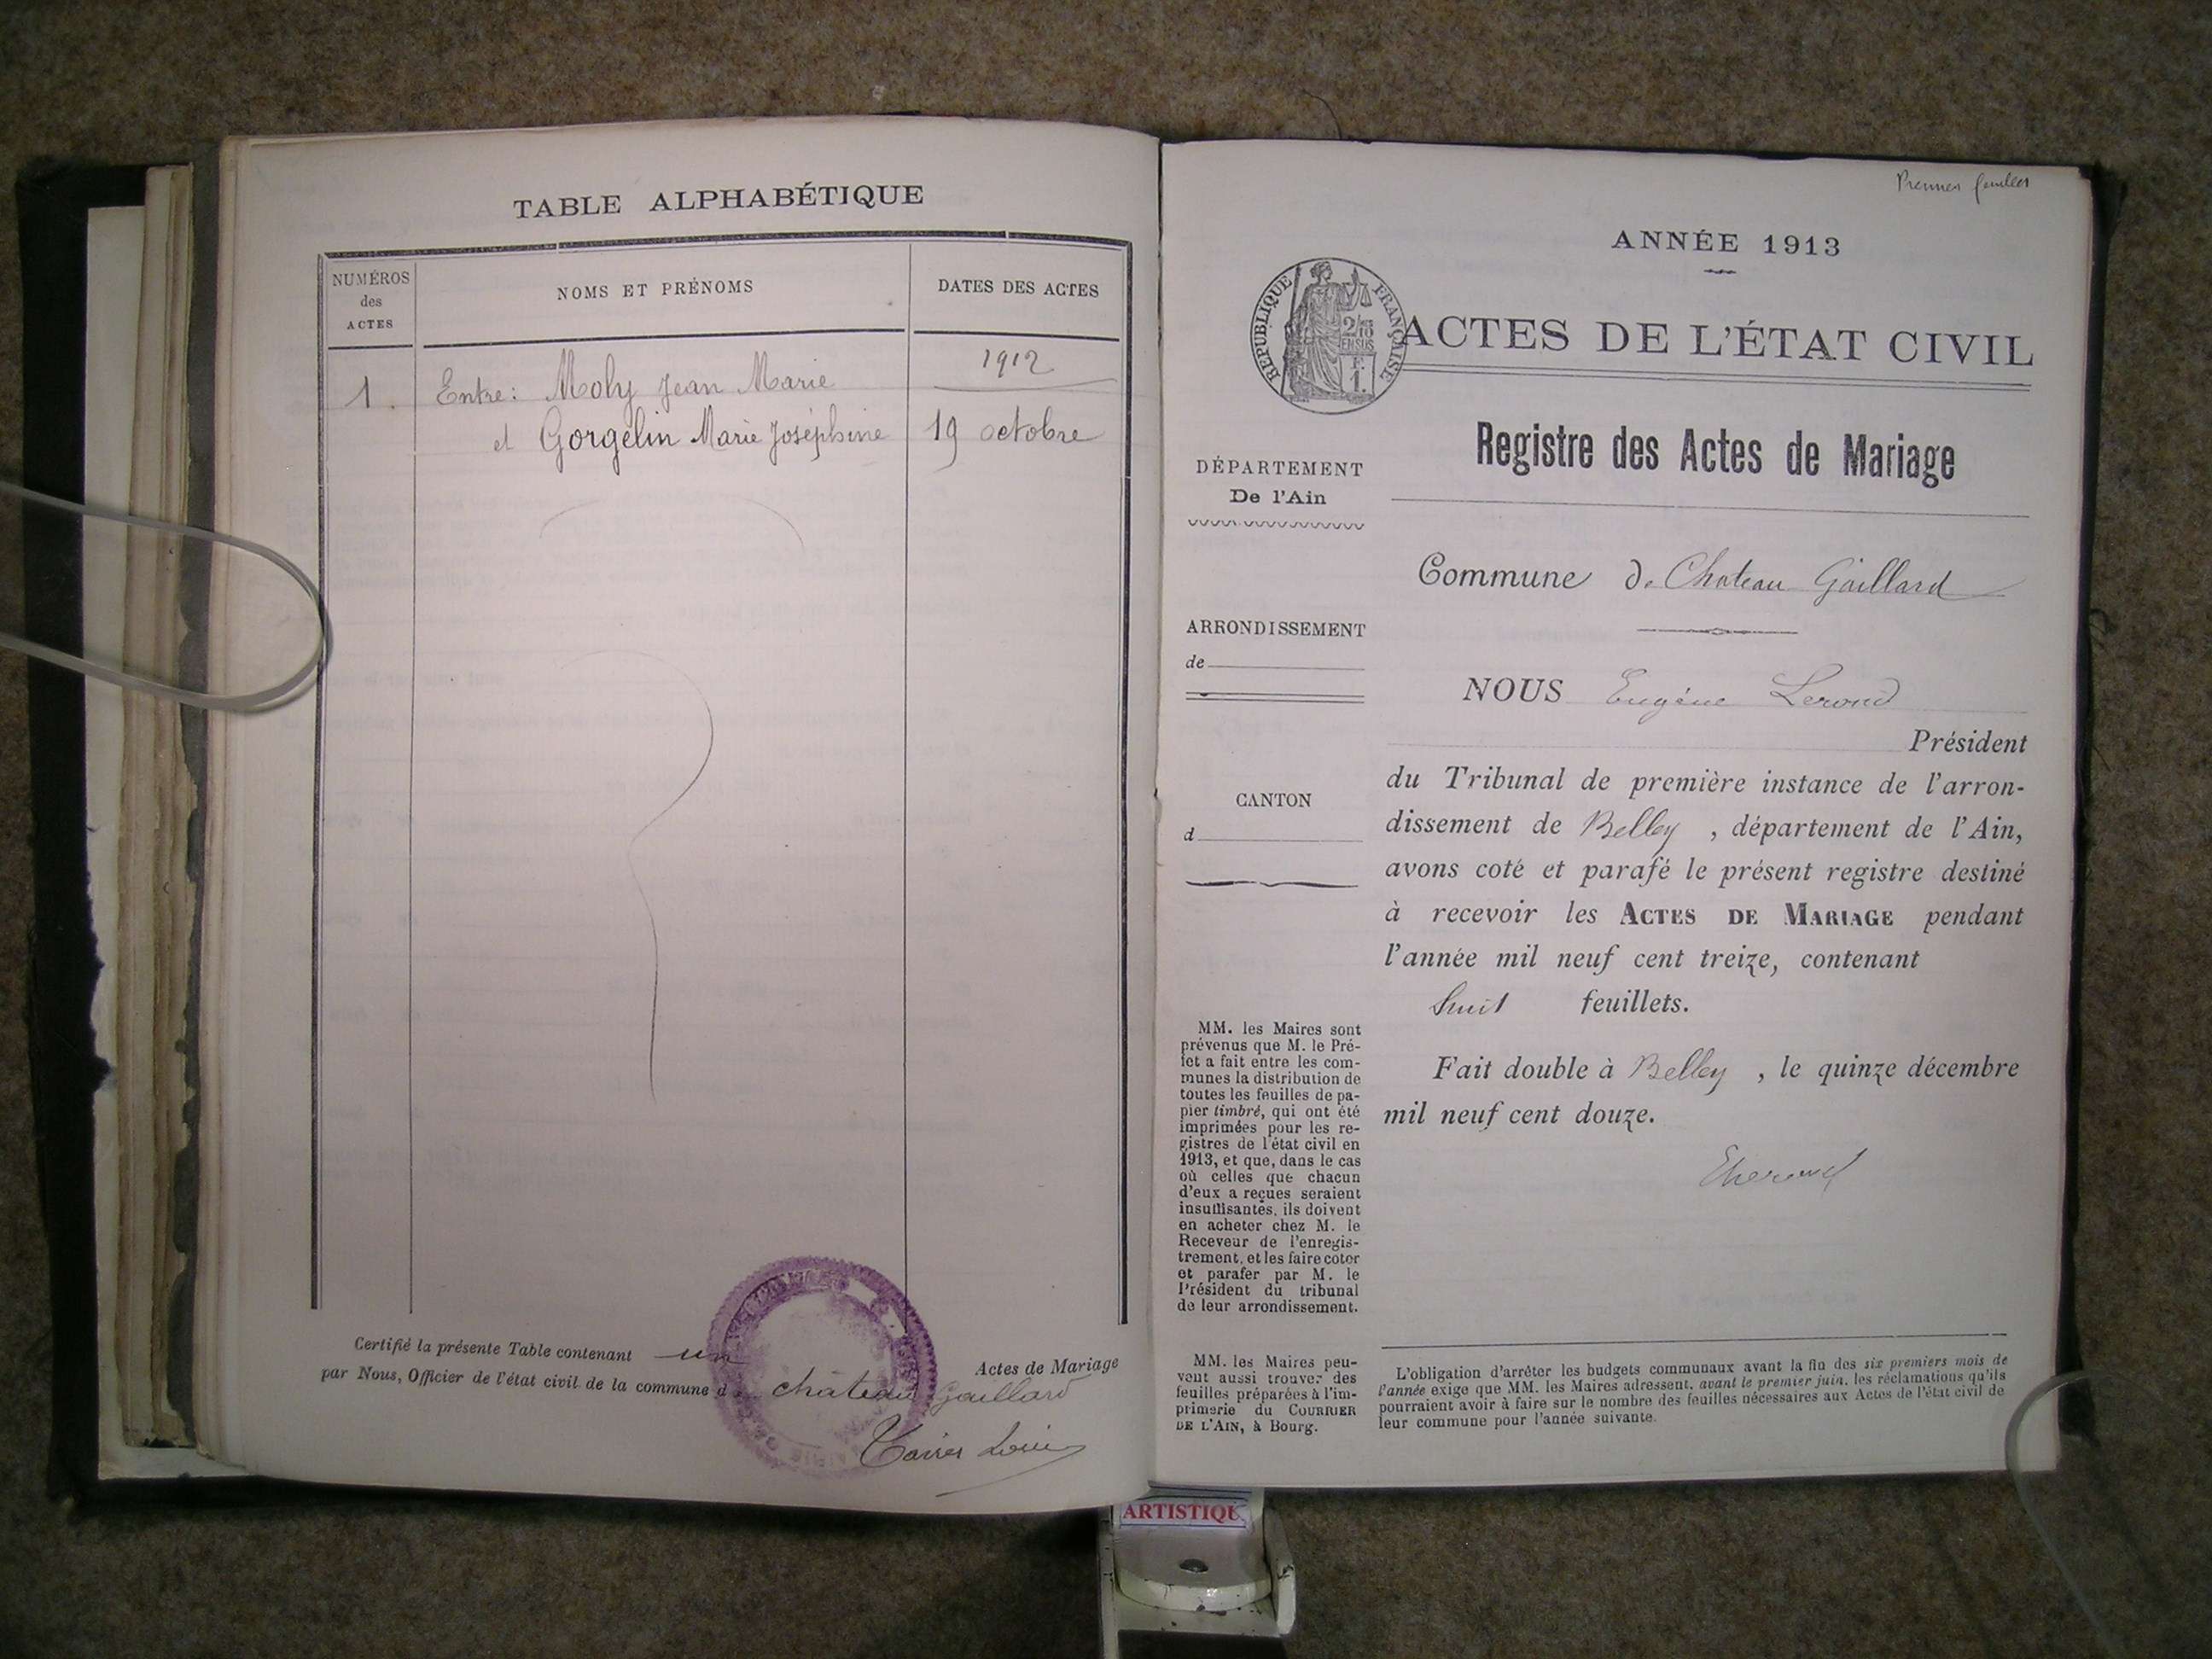 TABLE ALPHABÉTIQUE
NUMÉROS
des
ACTES
NOMS ET PRÉNOMS
DATES DES ACTES
1912
1. Entre: Moly Jean Marie
et Gorgelin Marie Joséphine 19 octobre
Certifié la présente Table contenant un Actes de Mariage
par Nous, Officier de l'état civil de la commune d château Gaillard
Premier feuillet
ANNÉE 1913
RÉPUBLIQUE FRANÇAISE
ACTES DE L'ÉTAT CIVIL
Registre des Actes de Mariage
DÉPARTEMENT
De l'Ain
Commune de Chateau Gaillard
ARRONDISSEMENT
de
CANTON
d
NOUS Eugène Lerond
Président
du Tribunal de première instance de l'arron-
dissement de Belley, département de l'Ain,
avons coté et parafé le présent registre destiné
à recevoir les ACTES DE MARIAGE pendant
l'année mil neuf cent treize, contenant
huit feuillets.
Fait double à Belley, le quinze décembre
mil neuf cent douze.
MM. les Maires sont
prévenus que M. le Pré-
fet a fait entre les com-
munes la distribution de
toutes les feuilles de pa-
pier timbré, qui ont été
imprimées pour les re-
gistres de l'état civil en
1913, et que, dans le cas
où celles que chacun
d'eux a reçues seraient
insuffisantes, ils doivent
en acheter chez M. le
Receveur de l'enregis-
trement, et les faire coter
et parafer par M. le
Président du tribunal
de leur arrondissement.
MM. les Maires peu-
vent aussi trouver des
feuilles préparées à l'im-
primerie du COURRIER
DE L'AIN, à Bourg.
L'obligation d'arrêter les budgets communaux avant la fin des six premiers mois de
l'année exige que MM. les Maires adressent, avant le premier juin, les réclamations qu'ils
pourraient avoir à faire sur le nombre des feuilles nécessaires aux Actes de l'état civil de
leur commune pour l'année suivante.
ARTISTIQUE